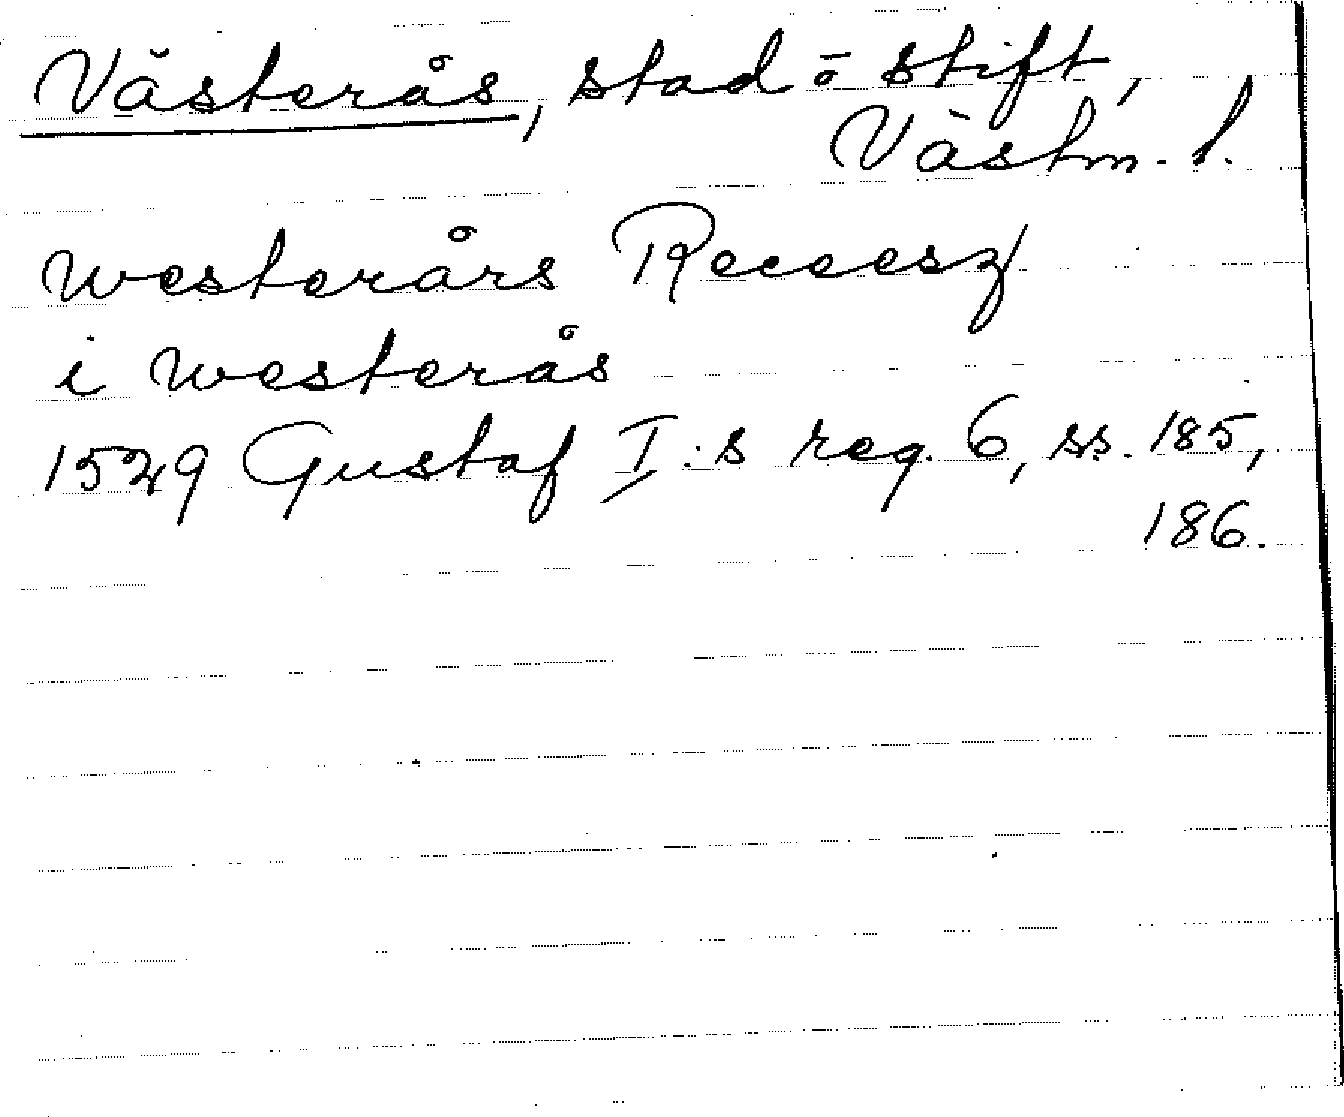 Västerås, stad o stift,
Västm. l.
Westerårs Receesz
i Westerås
1529 Gustaf I:s reg. 6, ss. 185,
186.